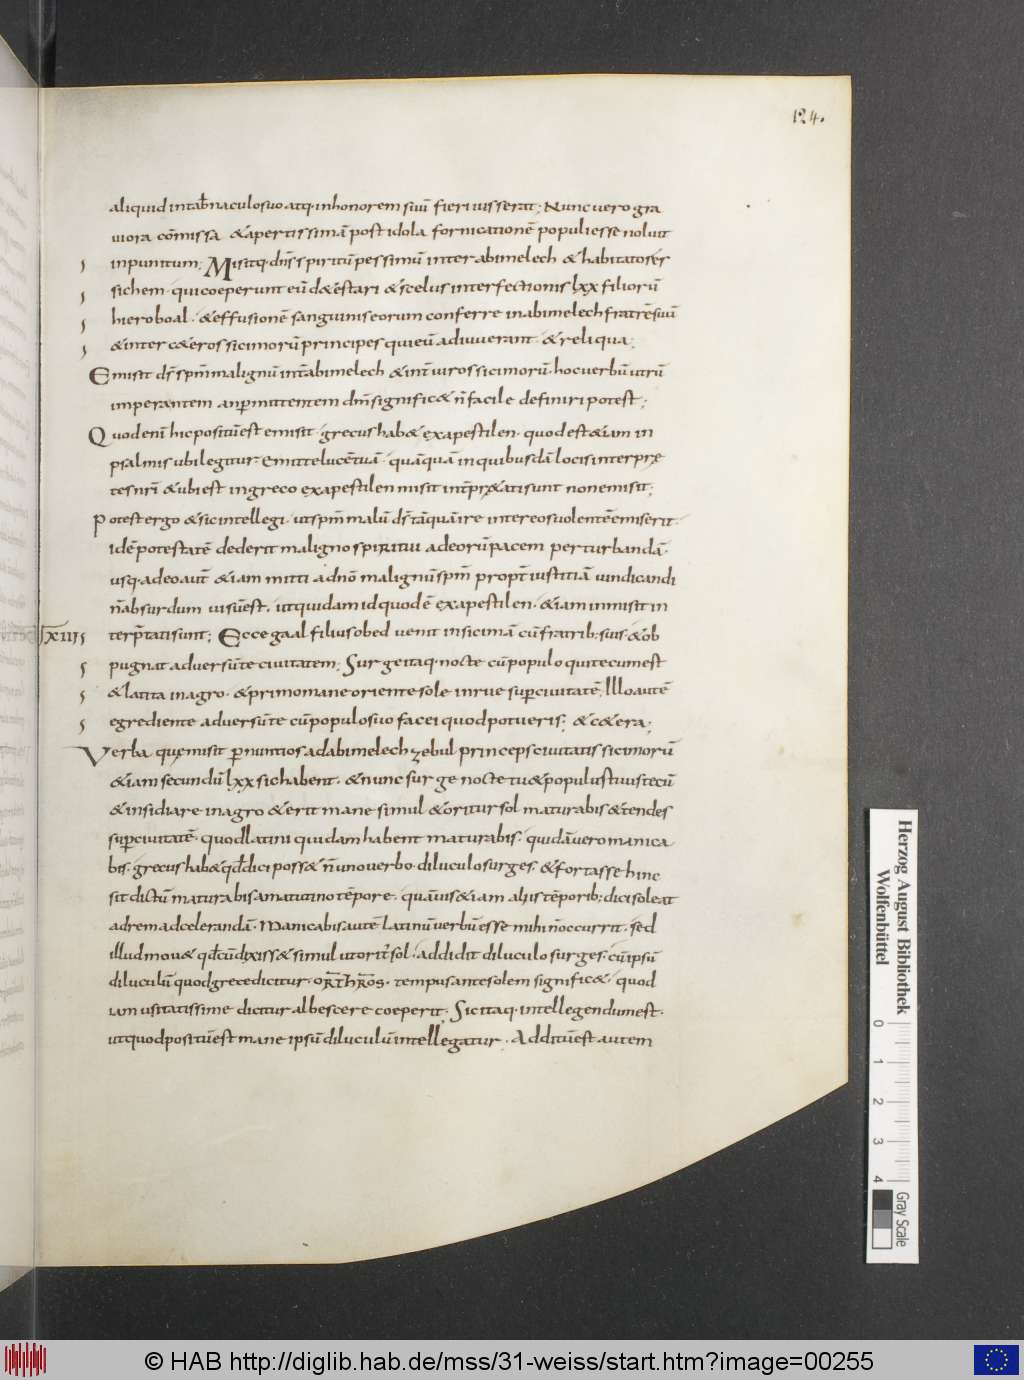 124.
aliquid in tab̄naculo suo atq· in honorem suū fieri iusserat; Nunc vero gra
viora cōmissa &apertissimā post idola fornicationē populi esse noluit
inpunitum; Misitq· dn̄s spiritū pessimū inter abimelech & habitatores
sichem· qui coeperunt eū d&estari & scelus interfectionis lxx filiorū
hieroboal· & effusionē sanguinis eorum conferre in abimelech fratrē suū
& inter c&eros sicimorū principes qui eū adiuverant· & reliqua;
Emisit ds̄ spm̄ malignū int̄ abimelech & int̄ viros sicimorū· hoc verbū utrū
imperantem an pmittentem dm̄ signific& n̄ facile definiri potest;
Quod enī hic positū est emisit· grecus hab& exapestilen· quod est &iam in
psalmis ubi legitur emitte lucē tuā· quāquā in quibusdā locis interpre
tes nr̄i & ubi est in greco exapestilen misit int̄pr&ati sunt non emisit;
Potest ergo & sic intellegi· ut spm̄ malū ds̄ tāquā ire inter eos volentē emiserit·
idē potestatē dederit maligno spiritui ad eorū pacem perturbandā·
usq· adeo aut̄ &iam mitti a dnō malignū spm̄ propt̄ iustitiā vindicandi
n̄ absurdum visū est· ut quidam id quod ē exapestilen· &iam inmisit in
lxiiij terpr̄tati sunt; Ecce gaal filius obed venit in sicimā cū fratrib; suis· & ob
pugnat adversū te civitatem; Surge itaq· nocte cū populo qui tecum est
& latita in agro· & primo mane oriente sole inrue sup civitatē; Illo autē
egrediente adversū te cū populo suo fac ei quod potueris; & c&era;
Verba que misit p nuntios ad abimelech zebul princeps civitatis sicimorū
&iam secundū lxx sic habent· & nunc surge nocte tu & populus tuus tecū
& insidiare in agro & erit mane simul & oritur sol maturabis & tendes
sup civitatē· quod latini quidam habent maturabis· quidā vero manica
bis· grecus hab& qd̄ dici poss& n̄ uno verbo· diluculo surges· & fortasse hinc
sit dictū maturabis a matutino tēpore· quāvis &iam aliis tēporib; dici soleat
ad rem adcelerandā· Manicabis autē Latinū verbū esse mihi n̄ occurrit· sed
illud mov& qd̄ cū dixiss& simul ut orit sol· addidit diluculo surges· cū ipsū
diluculū quod grece dicitur· ορ̄θρος· tempus ante solem signific&· quod
iam usitatissime dicitur albescere coeperit· Sic itaq· intellegendum est·
ut quod positū est mane ipsū diluculū intellegatur· Additū est autem
Herzog August Bibliothek
Wolfenbüttel
0 1 2 3 4
Gray Scale
© HAB http://diglib.hab.de/mss/31-weiss/start.htm?image=00255